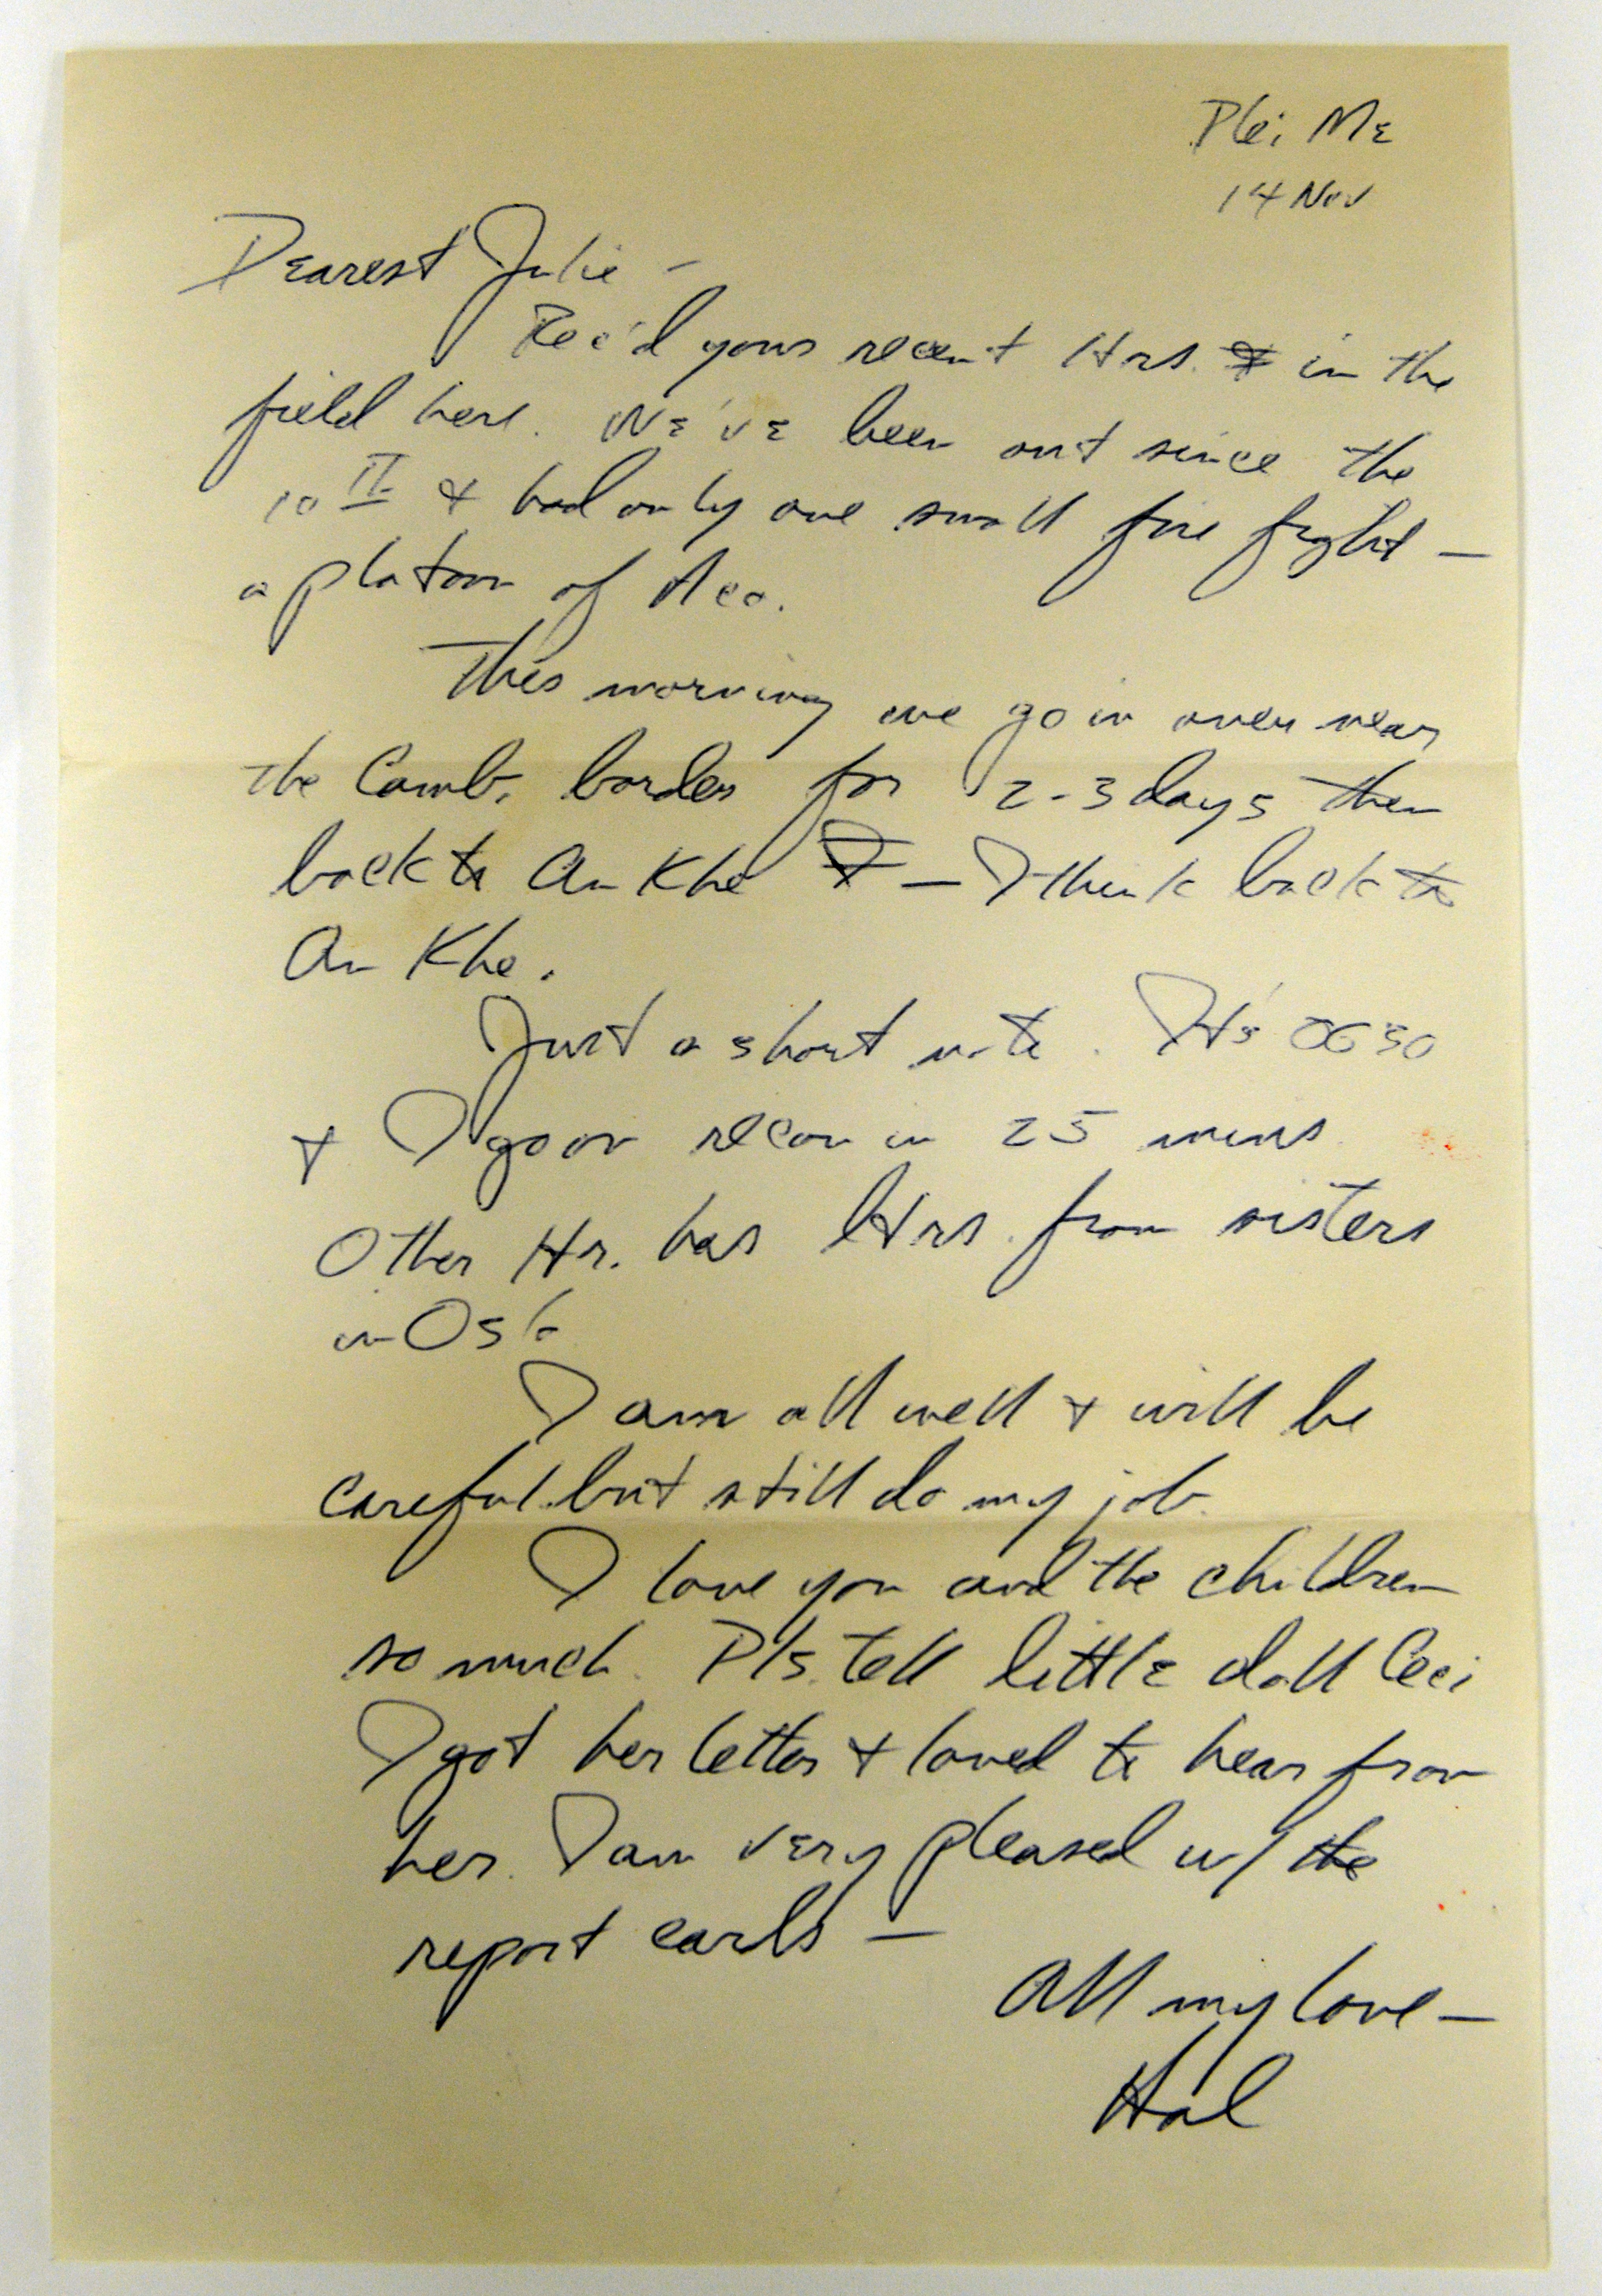 Plei Me
14 Nov
Dearest Julie -
Rec'd yours recent ltrs. in the
field here. We've been out since the
10th & had only one small fire fight -
a platoon of A co.
This morning we go in over near
the Camb. border for 2-3 days then
back to An Khe - I think back to
An Khe.
Just a short note. It's 0630
& I go on recon in 25 mins
Other ltr. has ltrs. from sisters
in Oslo
I am all well & will be
careful but still do my job.
I love you and the children
so much. Pls. tell little doll Ceci
I got her letter & loved to hear from
her. I am very pleased w/ the
report cards -
All my love -
Hal